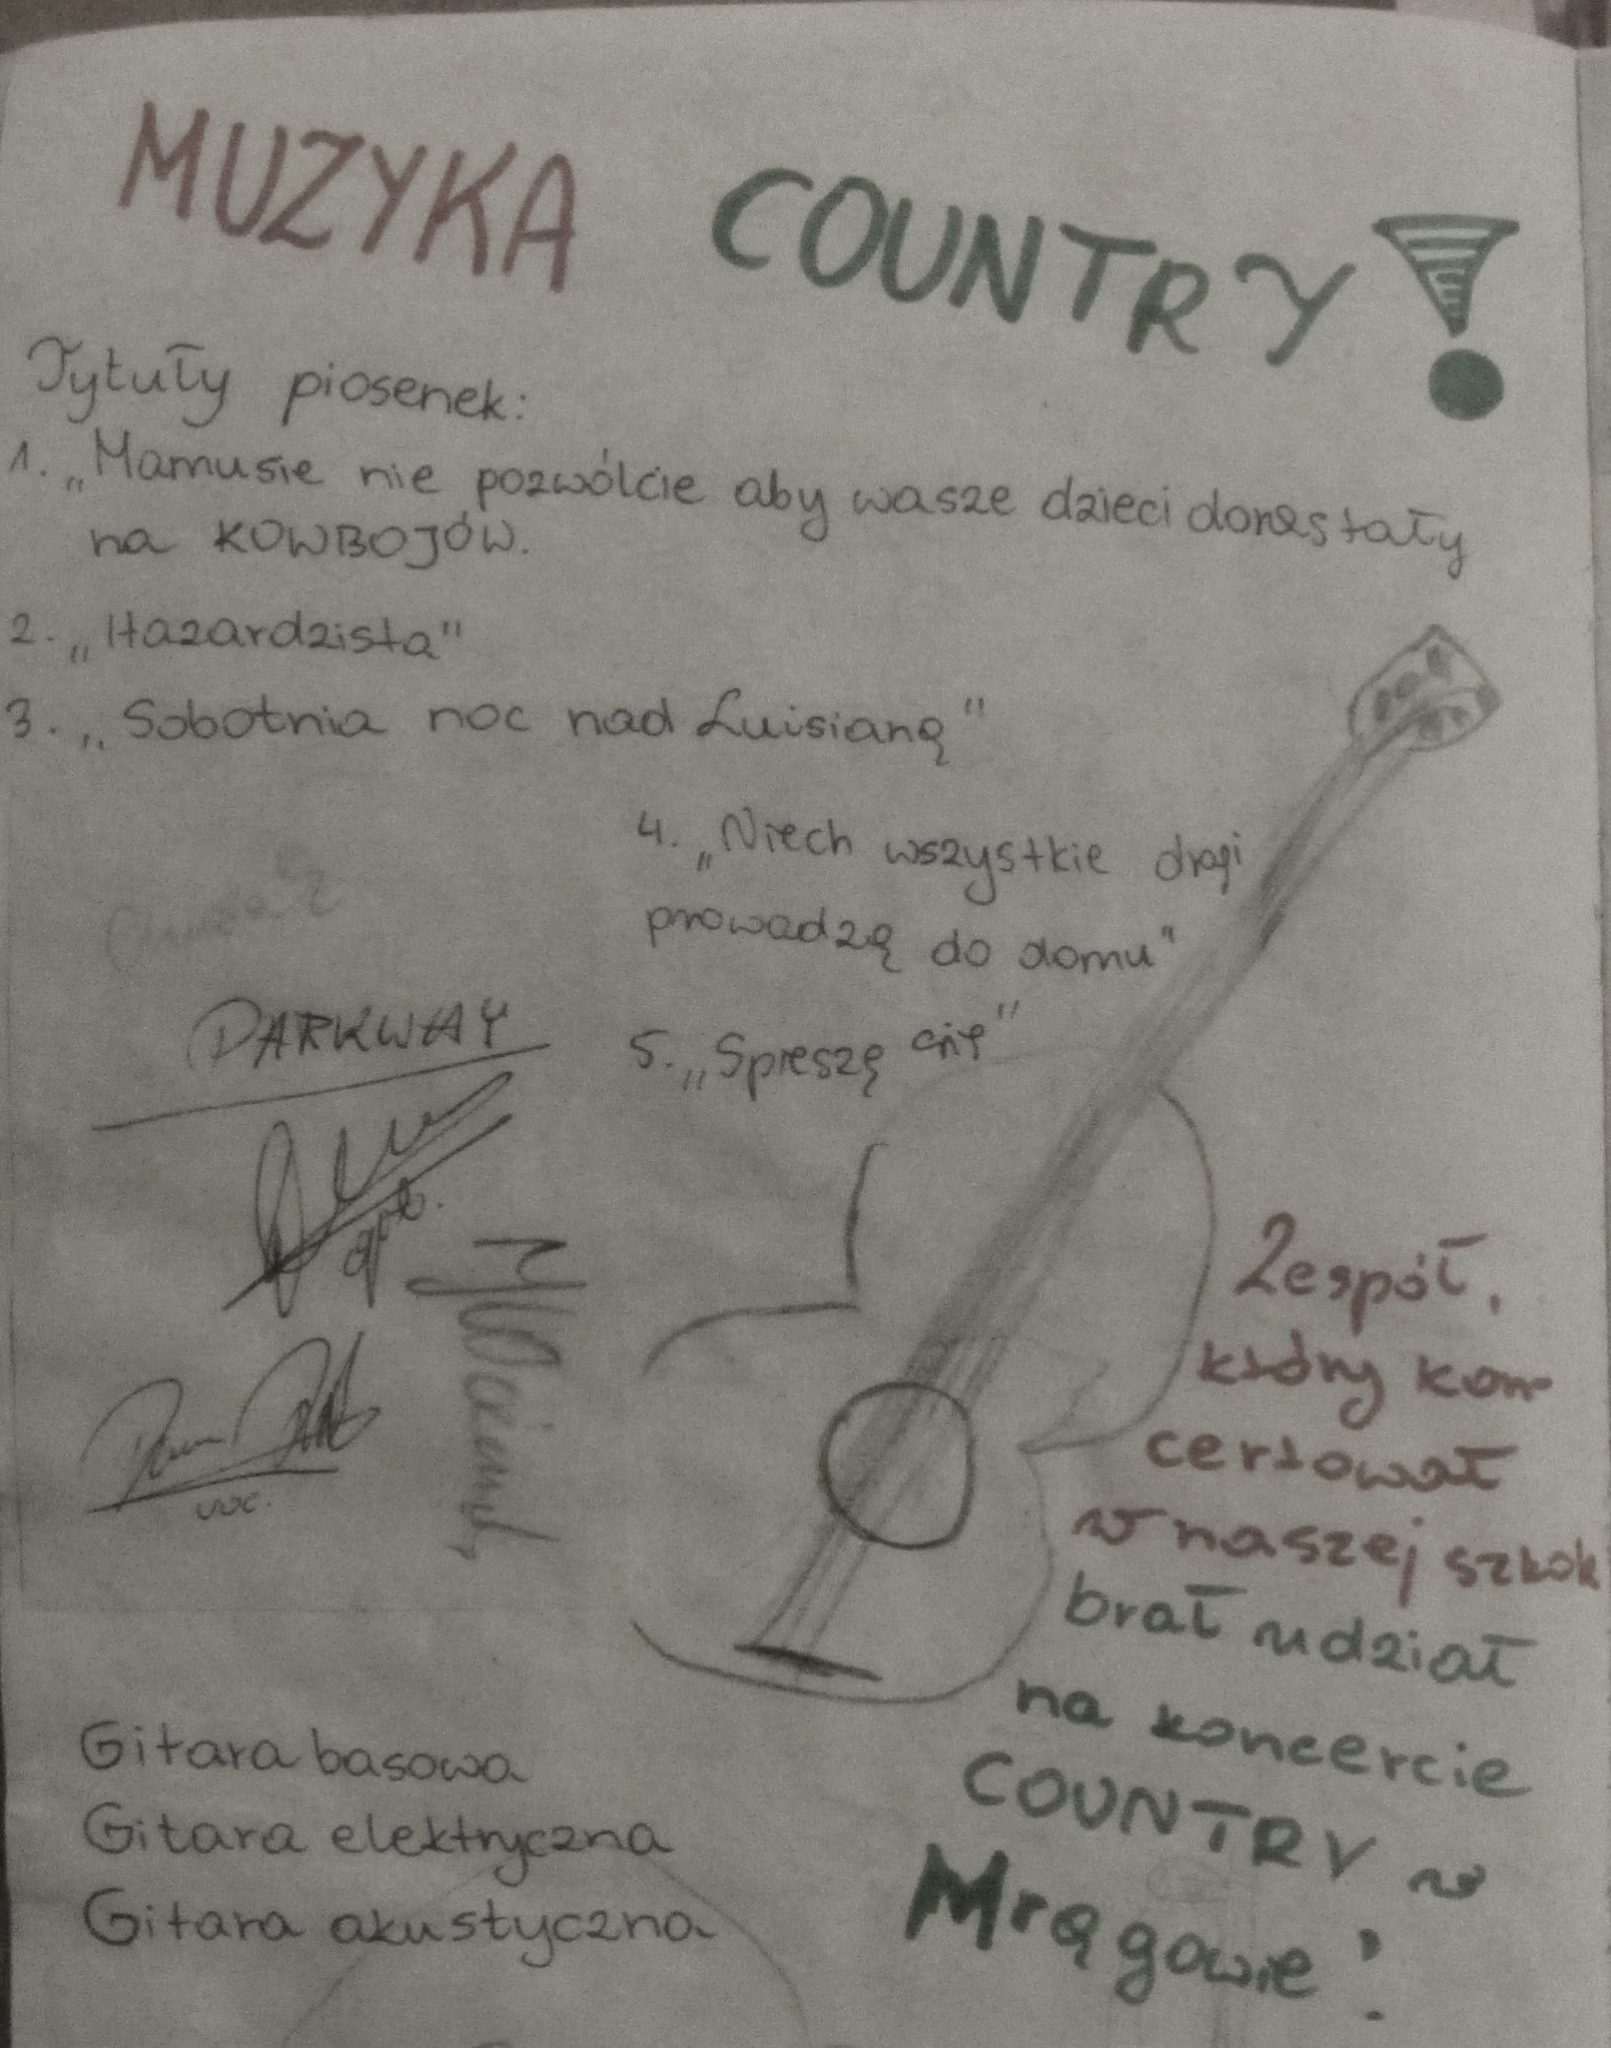 MUZYKA COUNTRY!
Tytuły piosenek:
1. „Mamusie nie pozwólcie aby wasze dzieci dorastały
na KOWBOJÓW.
2. „Hazardzista"
3. „Sobotnia noc nad Luisianą"
4. „Niech wszystkie drogi
prowadzą do domu"
5. „Spieszę się"
DARKWAY
voc.
Zespół,
który kon-
certował
w naszej szkole
brał udział
na koncercie
COUNTRY w
Mrągowie!
Gitara basowa
Gitara elektryczna
Gitara akustyczna